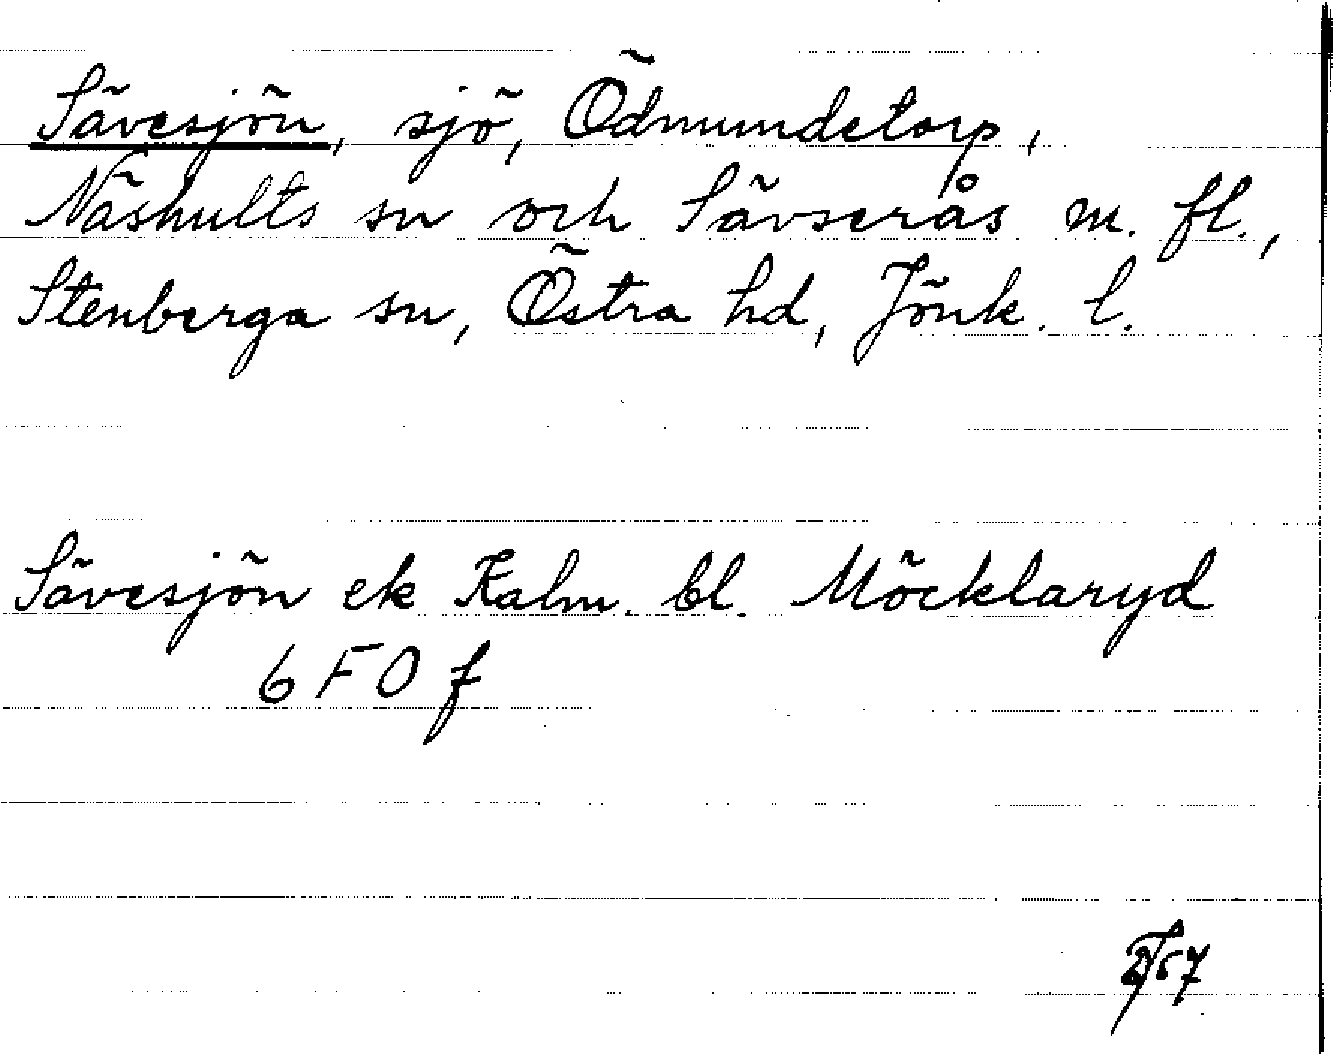 Sävesjön, sjö, Ödmundetorp,
Näshults sn och Sävserås m. fl.,
Stenberga sn, Östra hd, Jönk. l.
Sävesjön ek Kalm. bl. Möcklaryd
6 F O f